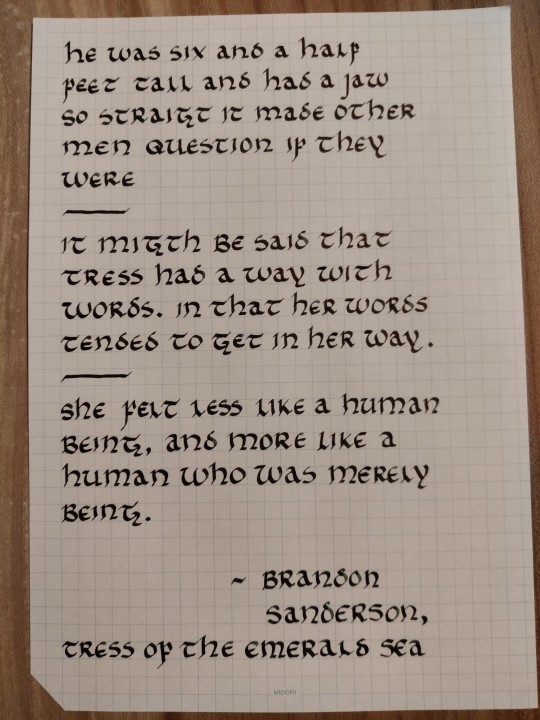 he was six and a half
feet tall and had a jaw
so straigt it made other
men question if they
were
it migth be said that
Tress had a way with
words. in that her words
tended to get in her way.
she felt less like a human
being, and more like a
human who was merely
being.
~ Brandon
Sanderson,
Tress of the emerald sea
MIDORI